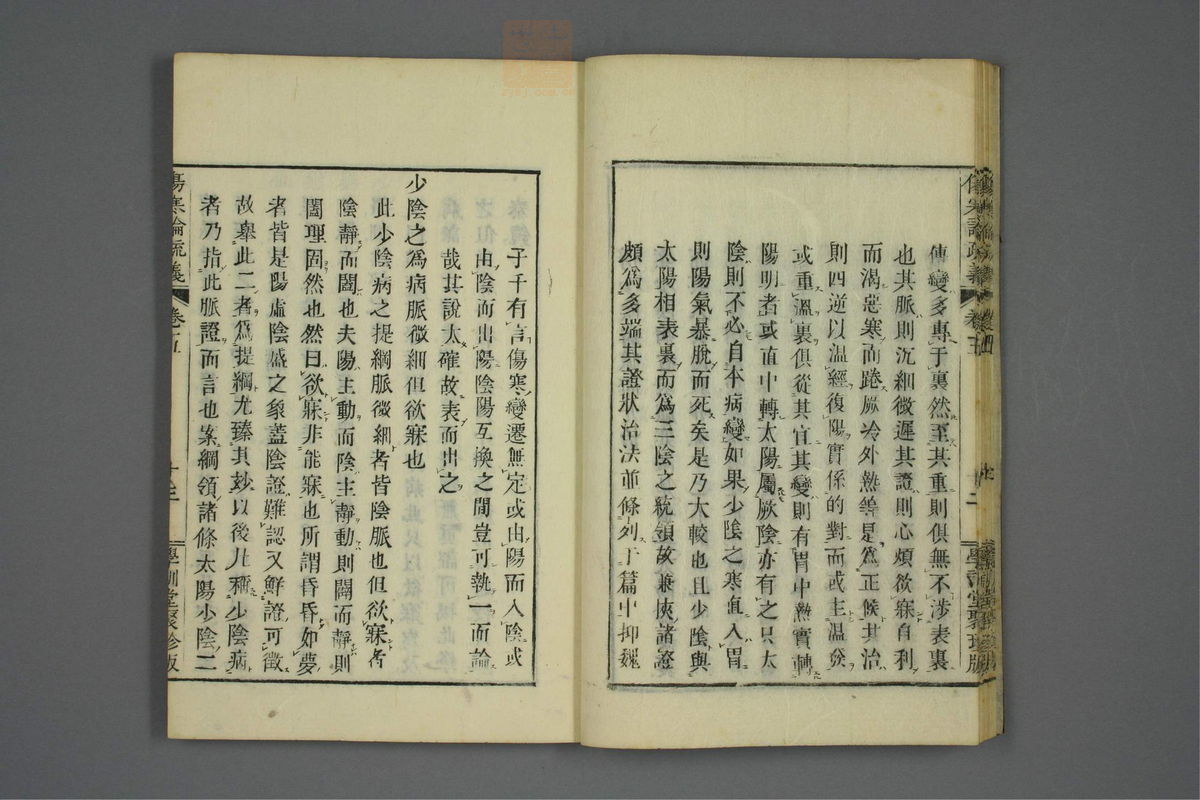 傳變多專于裏然至其重則俱無不涉表裏
也其脈則沉細微遲其證則心煩欲寐自利
而渴惡寒而踡厥冷外熱等是爲正候其治
則四逆以溫經復陽實係的對而或主溫發
或重溫裏俱從其宜其變則有胃中熱實轉
陽明者或直中轉太陽屬厥陰亦有之只太
陰則不必自本病變如果少陰之寒直入胃
則陽氣暴脫而死矣是乃大較也且少陰與
太陽相表裏而爲三陰之統領故兼挾諸證
頗爲多端其證狀治法並條列于篇中抑魏
子千有言傷寒變遷無定或由陽而入陰或
由陰而出陽陰陽互換之間豈可執一而論
哉其說太確故表而出之
少陰之爲病脈微細但欲寐也
此少陰病之提綱脈微細者皆陰脈也但欲寐者
陰靜而闔也夫陽主動而陰主靜動則闢而靜則
闔理固然也然曰欲寐非能寐也所謂昏昏如夢
者皆是陽虛陰盛之象蓋陰證難認又鮮證可徵
故舉此二者爲提綱尤臻其妙以後凡稱少陰病
者乃指此脈證而言也案綱領諸條太陽少陰二
傷寒論疏義
卷五
十三
學訓堂聚珍版